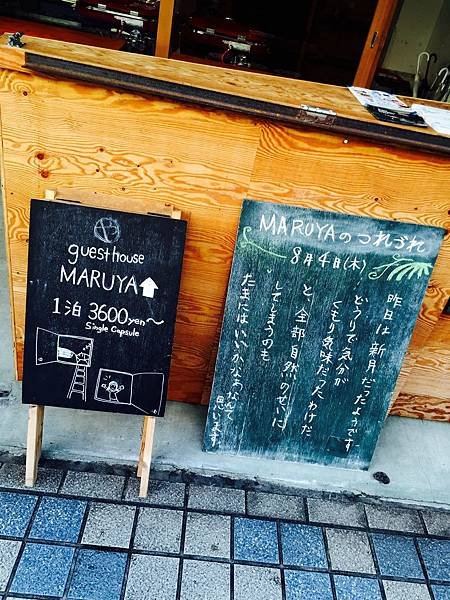 guesthouse
MARUYA
1泊 3600yen〜
Single Capsule
MARUYAのつれづれ
8月4日(木)
昨日は新月だったようです
どうりで気分が
くもり気味だったわけだ
と、全部自然のせいに
してしまうのも
たまにはいいかなぁなんて
思います